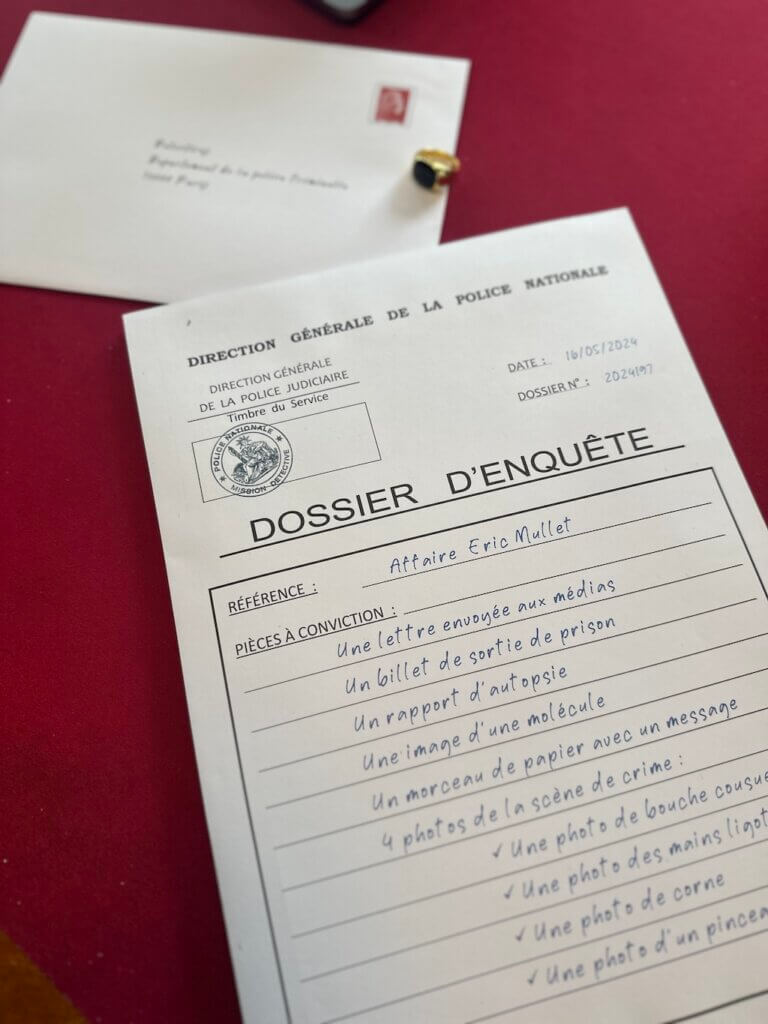 de la police Criminelle
DIRECTION GÉNÉRALE DE LA POLICE NATIONALE
DIRECTION GÉNÉRALE
DE LA POLICE JUDICIAIRE
Timbre du Service
POLICE NATIONALE
MISSION DETECTIVE
DATE : 16/05/2024
DOSSIER N° : 2024197
DOSSIER D'ENQUÊTE
RÉFÉRENCE : Affaire Eric Mullet
PIÈCES À CONVICTION :
Une lettre envoyée aux médias
Un billet de sortie de prison
Un rapport d'autopsie
Une image d'une molécule
Un morceau de papier avec un message
4 photos de la scène de crime :
✓ Une photo de bouche cousue
✓ Une photo des mains ligot
✓ Une photo de corne
✓ Une photo d'un pincea